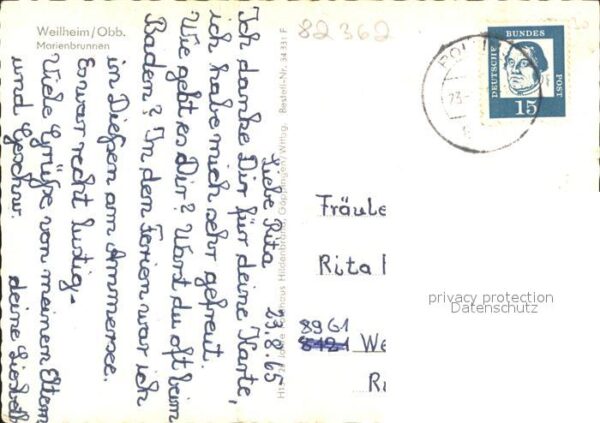 Weilheim/Obb.
Marienbrunnen
82362
23.8.65
Liebe Rita
Ich danke Dir für deine Karte,
ich habe mich sehr gefreut.
Wie geht es Dir? Warst du oft beim
Baden? In den Ferien war ich
in Dießen am Ammersee.
Es war recht lustig.
Viele Grüße von meinem Eltern
und Geschw. deine
Bestell-Nr. 34 331 F
DEUTSCHE BUNDES POST
15
Fräule
Rita
8961
8121 We
privacy protection
Datenschutz